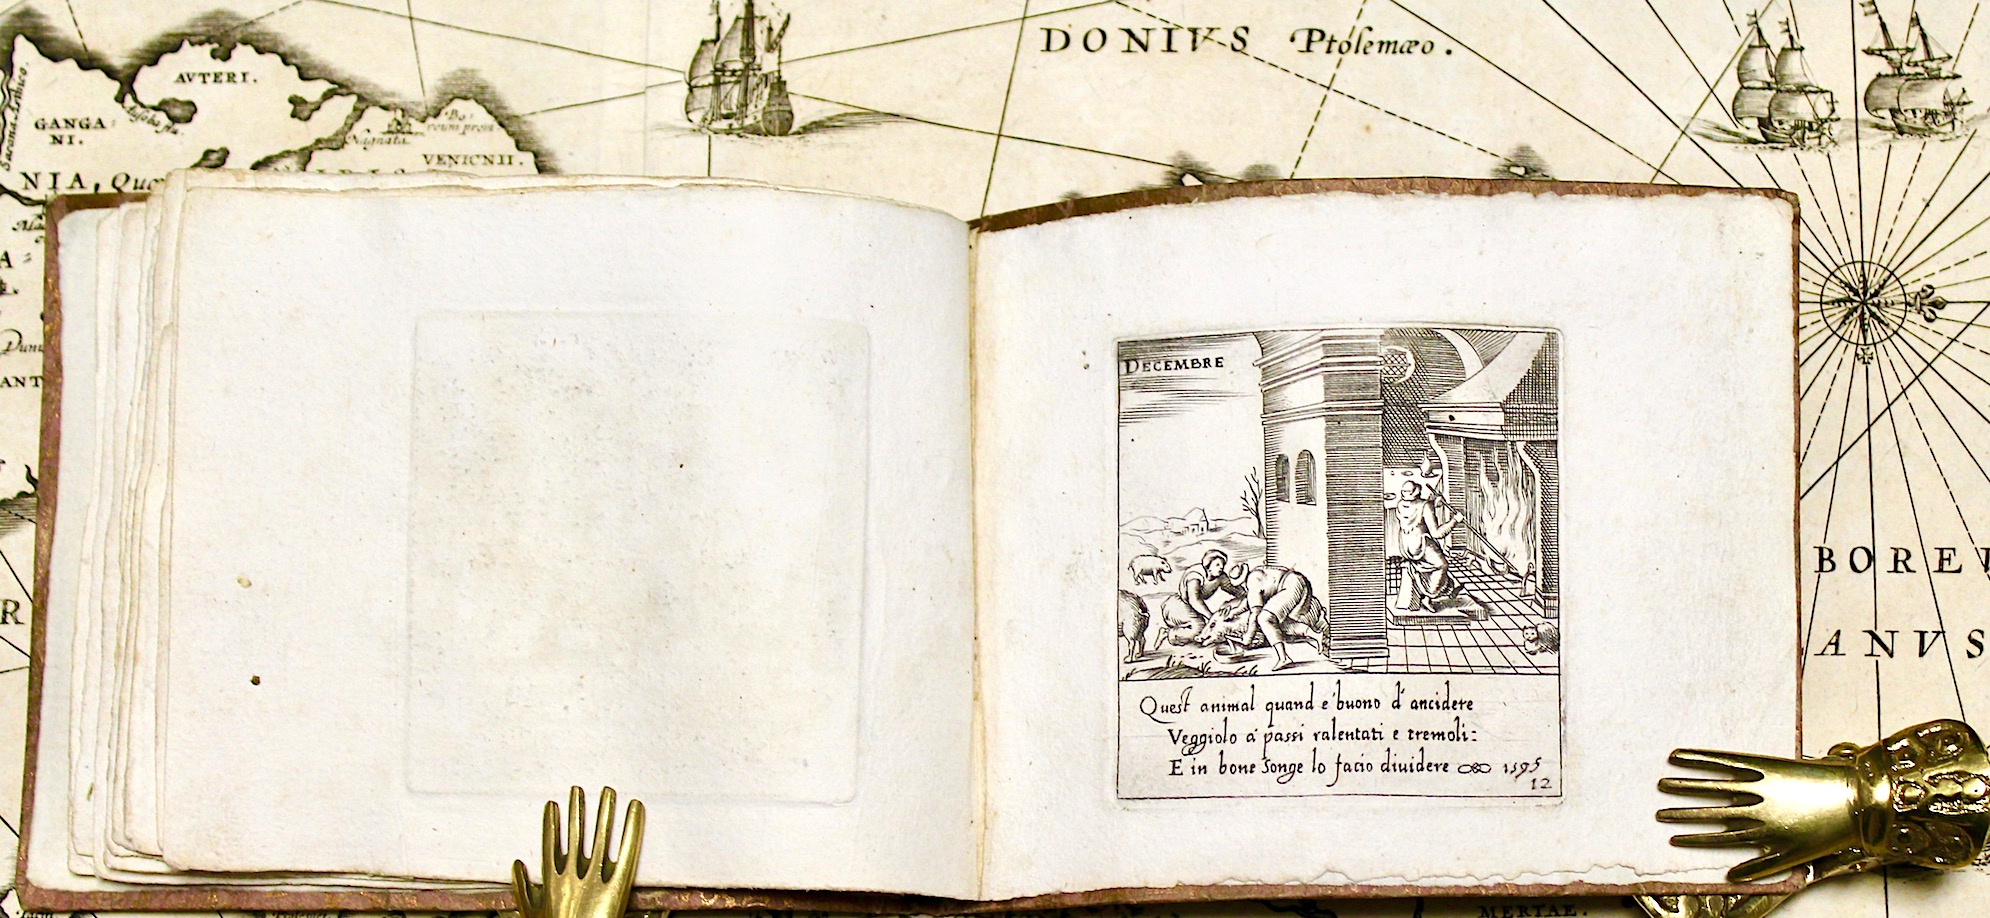 DONIVS Ptolemæo.
AVTERI.
GANGA:
NI.
Nagnata
VENICNII.
NIA, Quæ
ANT
R
BOREI
ANVS
DECEMBRE
Quest animal quand e' buono d' ancidere
Veggiolo a' passi ralentati e tremoli:
E in bone songe lo facio diuidere 1595
12
MERTAE.